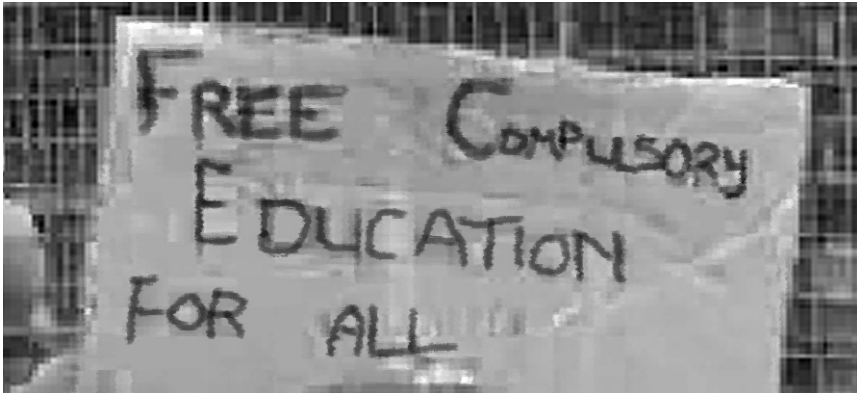 FREE COMPULSORY
EDUCATION
FOR ALL